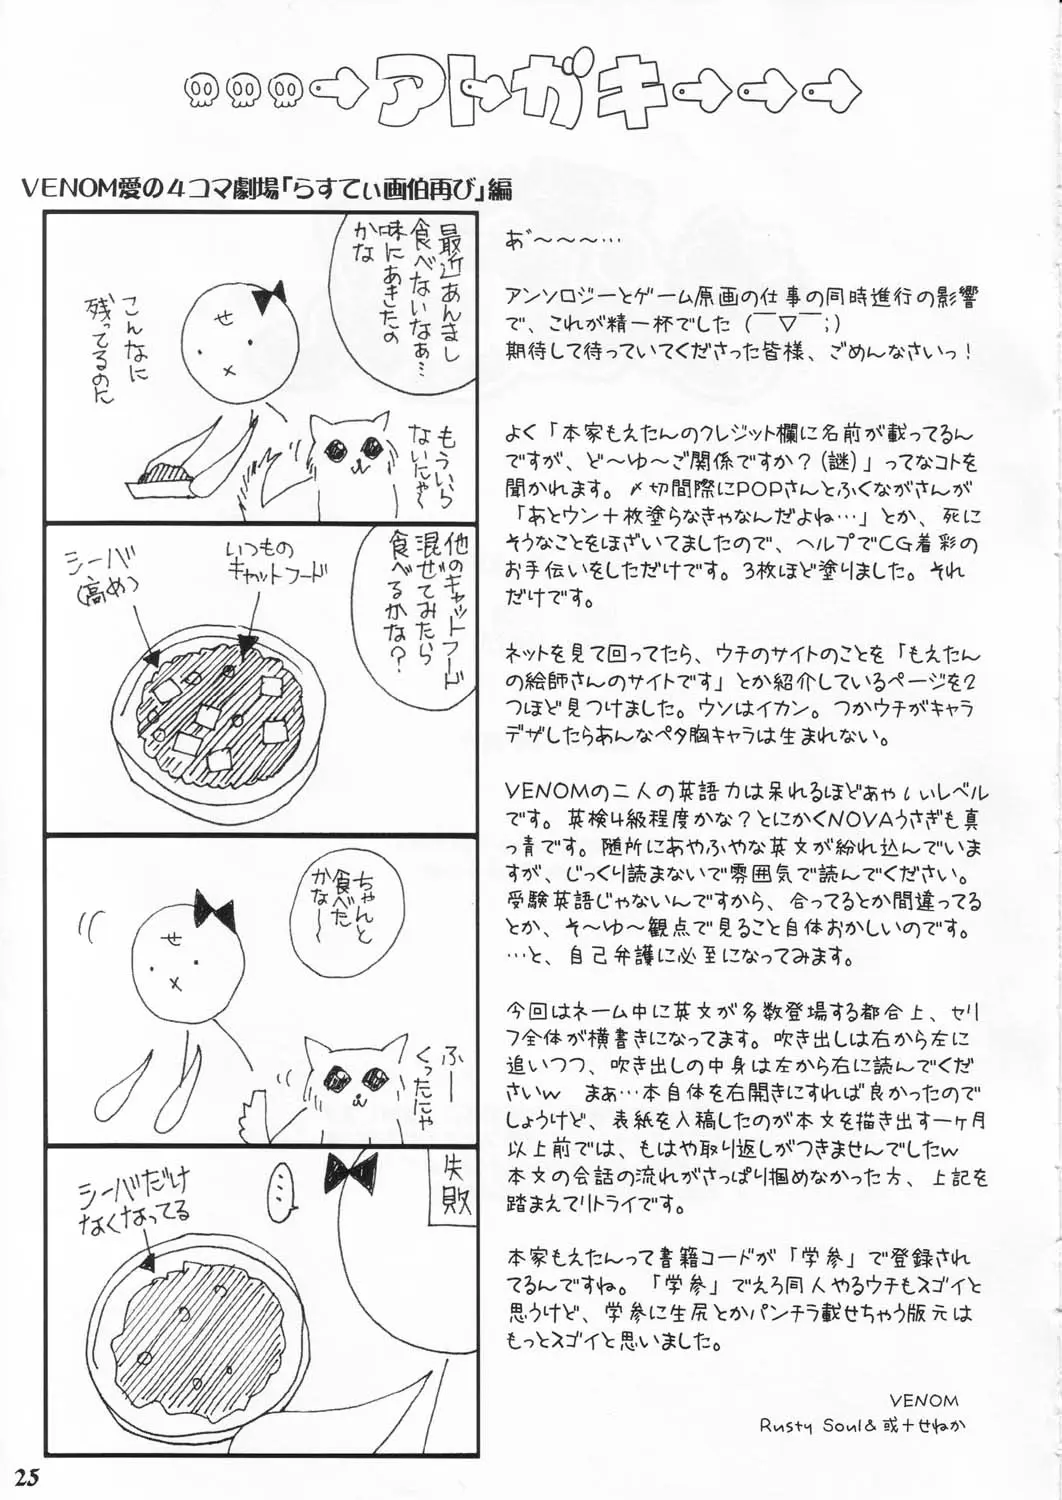 アトガキ
VENOM愛の4コマ劇場「らすてぃ画伯再び」編
最近あんまし
食べないなぁ…
味にあきたの
かな
せ
こんなに
残ってるのに
もういら
ないにゃ〜
他のキャットフード
混ぜてみたら
食べるかな?
いつもの
キャットフード
シーバ
(高め)
ちゃんと
食べた
かな〜
せ
ふー
くったにゃ
失敗
…
シーバだけ
なくなってる
あ゛〜〜〜…
アンソロジーとゲーム原画の仕事の同時進行の影響
で、これが精一杯でした(￣▽￣;)
期待して待っていてくださった皆様、ごめんなさいっ!
よく「本家もえたんのクレジット欄に名前が載ってるん
ですが、ど〜ゆ〜ご関係ですか?(謎)」ってなコトを
聞かれます。〆切間際にPOPさんとふくながさんが
「あとウン十枚塗らなきゃなんだよね…」とか、死に
そうなことをほざいてましたので、ヘルプでCG着彩の
お手伝いをしただけです。3枚ほど塗りました。それ
だけです。
ネットを見て回ってたら、ウチのサイトのことを「もえたん
の絵師さんのサイトです」とか紹介しているページを2
つほど見つけました。ウソはイカン。つかウチがキャラ
デザしたらあんなペタ胸キャラは生まれない。
VENOMの二人の英語力は呆れるほどあゃしぃレベル
です。英検4級程度かな?とにかくNOVAうさぎも真
っ青です。随所にあやふやな英文が紛れ込んでいま
すが、じっくり読まないで雰囲気で読んでください。
受験英語じゃないんですから、合ってるとか間違ってる
とか、そ〜ゆ〜観点で見ること自体おかしいのです。
…と、自己弁護に必至になってみます。
今回はネーム中に英文が多数登場する都合上、セリ
フ全体が横書きになってます。吹き出しは右から左に
追いつつ、吹き出しの中身は左から右に読んでくだ
さいw まぁ…本自体を右開きにすれば良かったので
しょうけど、表紙を入稿したのが本文を描き出す一ヶ月
以上前では、もはや取り返しがつきませんでしたw
本文の会話の流れがさっぱり掴めなかった方、上記を
踏まえてリトライです。
本家もえたんって書籍コードが「学参」で登録され
てるんですね。「学参」でえろ同人やるウチもスゴイと
思うけど、学参に生尻とかパンチラ載せちゃう版元は
もっとスゴイと思いました。
VENOM
Rusty Soul&或十せねか
25